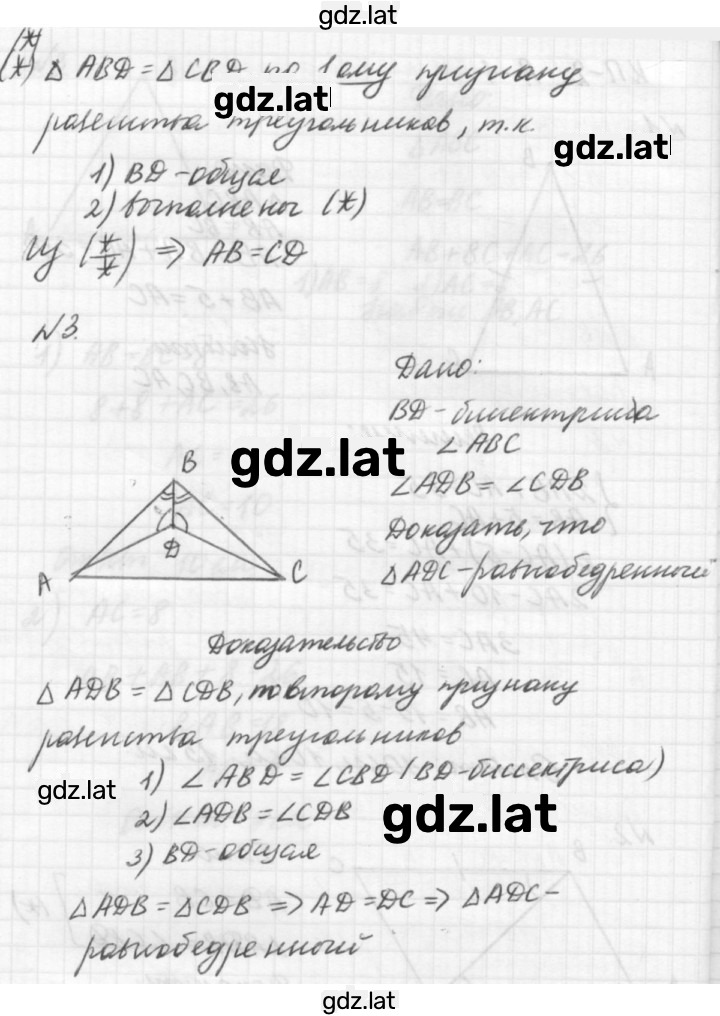 gdz.lat
(*/*) Δ ABD = Δ CBD по 1ому признаку
gdz.lat
равенства треугольников, т.к.
gdz.lat
1) BD - общая
2) выполнены (*)
Из (*/*) => AB = CD
N3.
Дано:
BD - биссектриса
∠ABC
∠ADB = ∠CDB
Доказать, что
ΔADC - равнобедренный
gdz.lat
B
D
A
C
Доказательство
Δ ADB = Δ CDB, по второму признаку
равенства треугольников
1) ∠ABD = ∠CBD (BD - биссектриса)
gdz.lat
2) ∠ADB = ∠CDB
gdz.lat
3) BD - общая
Δ ADB = Δ CDB => AD = DC => Δ ADC -
равнобедренный
gdz.lat